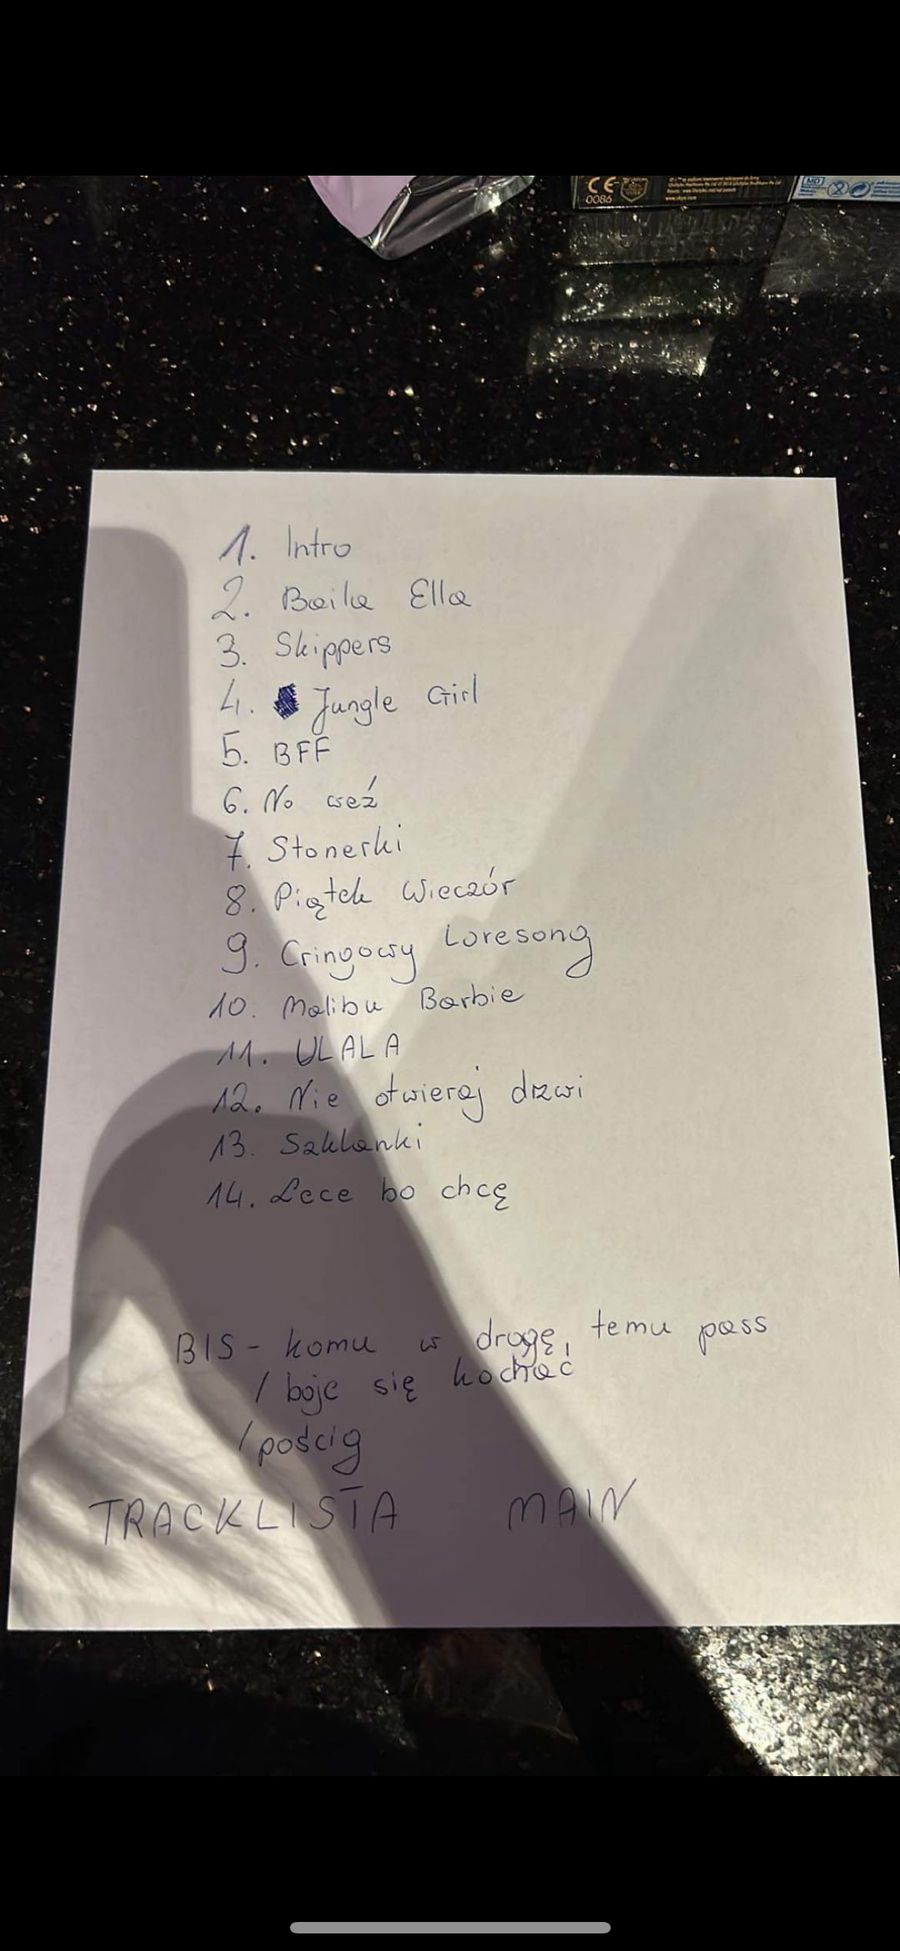 CE
0086
MD
1. Intro
2. Baila Ella
3. Skippers
4. Jungle Girl
5. BFF
6. No weź
7. Stonerki
8. Piątek Wieczór
9. Cringowy Loresong
10. Malibu Barbie
11. ULALA
12. Nie otwieraj drzwi
13. Szklanki
14. Lece bo chcę
BIS - komu w drogę, temu pass
/ boje się kochać
/ pościg
TRACKLISTA MAIN